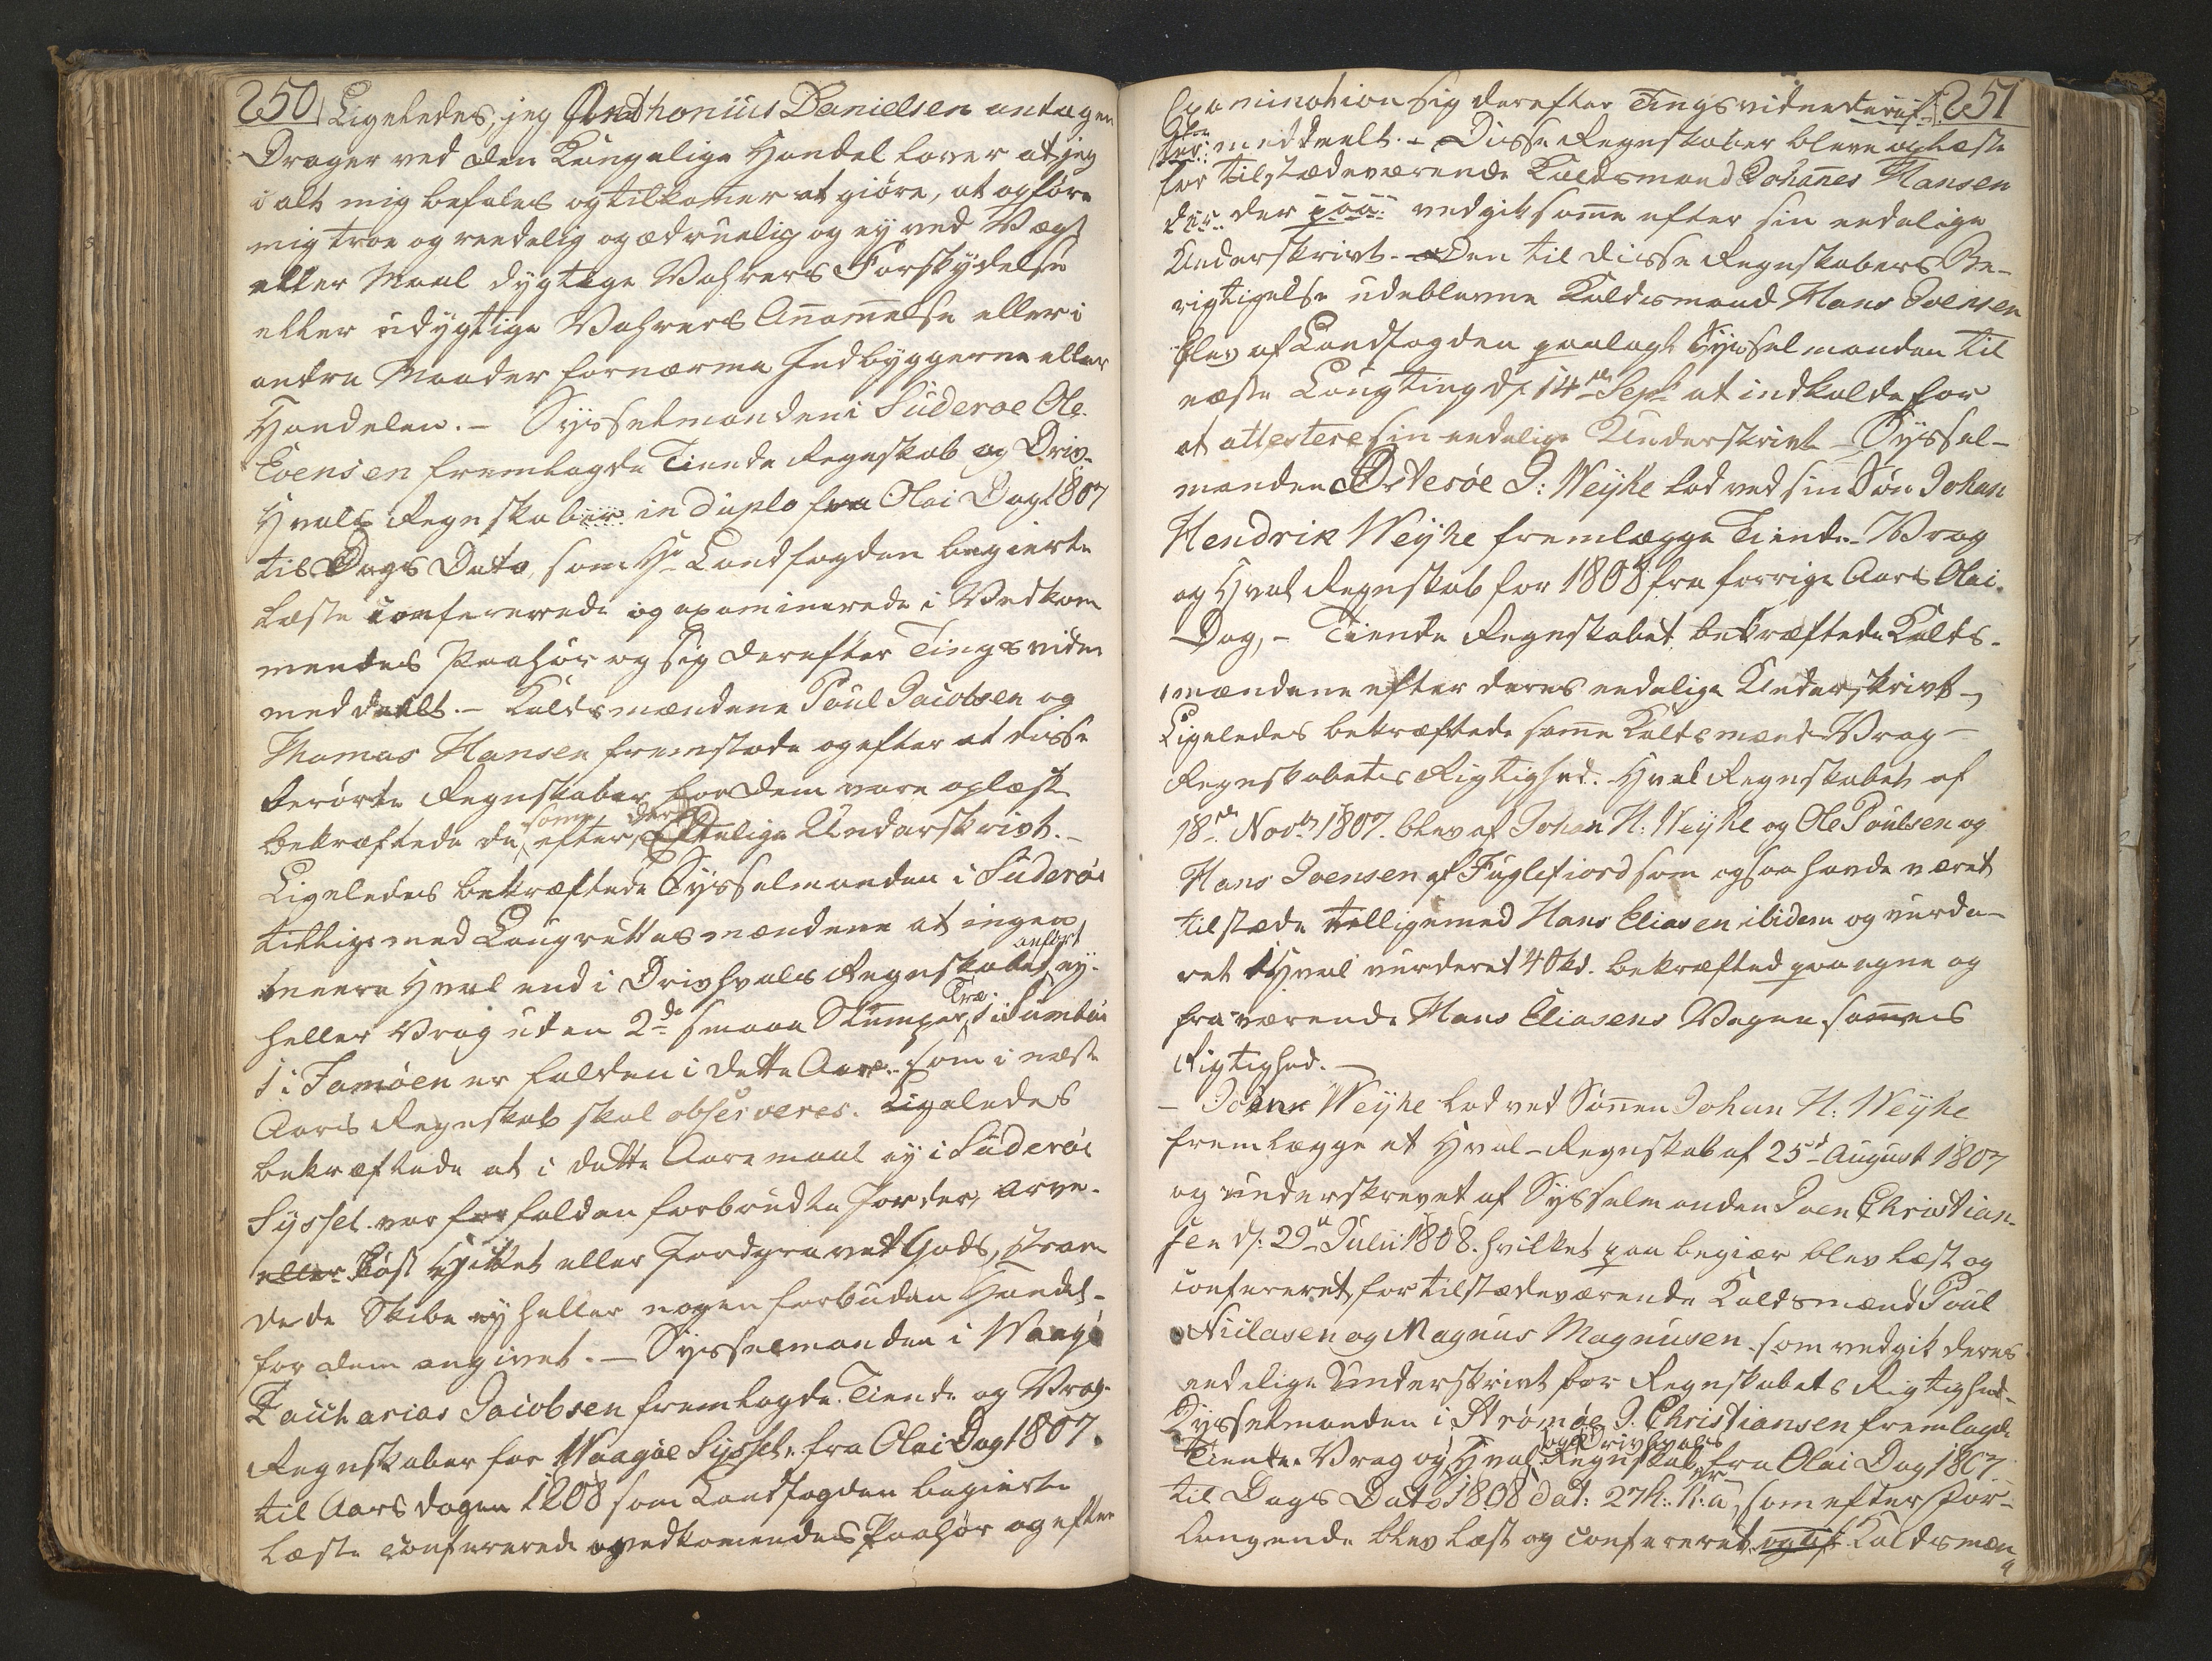 250 Ligeledes, jeg Anthonius Danielsen antagen
Drager ved den Kongelige Handel lover at jeg
i alt mig befales og tilkomer at giöre, at opföre
mig troe og reedelig og ædruelig og ej ved Vægt
eller Maal dygtige Vahrers Forskydelse
eller udygtige Vahrers Anammelse eller i
andre Maader fornærme Indbyggerne eller
Handelen. - Sysselmanden i Süderoe Ole
Joensen fremlagde Tiende Regnskab og Driv-
Hvals Regnskaber in duplo fra Olai Dag 1807
til Dags Dato, som Hr Landfogden begierte
læste confererede og examinerede i Vedkom
mendes Paahör og sig derefter Tingsvidne
meddeelt. - Kaldsmændene Poul Jacobsen og
Thomas Hansen fremstode og efter at disse
berörte Regnskaber for dem vare oplæst
bekræftede de samme efter deres Edelige Underskrivt. -
Ligeledes bekræftede Sysselmanden i Süderöe
tillige med Laugrettesmændene at ingen
meere Hval end i Drivhvals Regnskabet anfört ej
heller Vrag uden 2de smaae Stumper Træ 1 i Sumböe
1 i Famöen er falden i dette Aar som i næste
Aars Regnskab skal observeres. Ligeledes
bekræftede at i dette Aaremaal ej i Süderöe
Syssel var forfalden forbrudte Jorder, arve-
eller löst Hittet eller Jordgravet Gods, stran
dede Skibe ej heller nogen forbuden Handel
for dem angivet. - Sysselmanden i Waagöe
Zaccharias Jacobsen fremlagde Tiende og Vrag-
Regnskaber for Waagöe Syssel fra Olai Dag 1807
til Aarsdagen 1808 som Landfogden begierte
læste confererede og vedkomendes Paahör og efter
Examination sig derefter Tingsvidne deraf 251
meddeelt. - Disse Regnskaber bleve oplæste
for tilstædeværende Kaldsmand Johannes Hansen
der paa vedgik samme efter sin eedelige
Underskrivt. - Den til disse Regnskabers Be-
rigtigelse udeblevne Kaldsmand Hans Joensen
blev af Landfogden paalagt Sysselmanden til
næste Laugting d. 14de Sept at indkalde for
at attestere sin eedelige Underskrivt - Syssel-
manden Österöe J: Weyhe lod ved sin Sön Johan
Hendrik Weyhe fremlægge Tiende- Vrag
og Hval Regnskab for 1808 fra forrige Aars Olai
Dag, - Tiende Regnskabet bekræftede Kalds-
mændene efter deres eedelige Underskrivt -
Ligeledes bekræftede samme Kaldsmænd Vrag-
Regnskabets Rigtighed. Hval Regnskabet af
18de Novbr 1807. blev af Johan H: Weyhe og Ole Poulsen og
Hans Joensen af Fuglefiord som ogsaa havde været
tilstæde tilligemed Hans Eliasen ibidem og vurde-
ret 1 Hval vurderet 40 kd. bekræfted paa egne og
fraværende Hans Eliasens Vegne sammes
Rigtighed. -
- Johan Weyhe lod ved Sönnen Johan H: Weyhe
fremlægge et Hval-Regnskab af 25de August 1807
og underskrevet af Sysselmanden Joen Christian-
sen d. 29de Julii 1808. hvilket paa begiær blev læst og
confereret, for tilstædeværende Kaldsmænd Poul
Niclasen og Magnus Magnusen som vedgik deres
eedelige Underskrivt for Regnskabets Rigtighed
Sysselmanden i Strömöe J. Christiansen fremlagde
Tiende- Vrag og Hval og Drivhvals Regnskaber fra Olai Dag 1807
til Dags Dato 1808 dat: 27h: h: a, som efter For-
langende blev læst og confereret og af Kaldsmæn